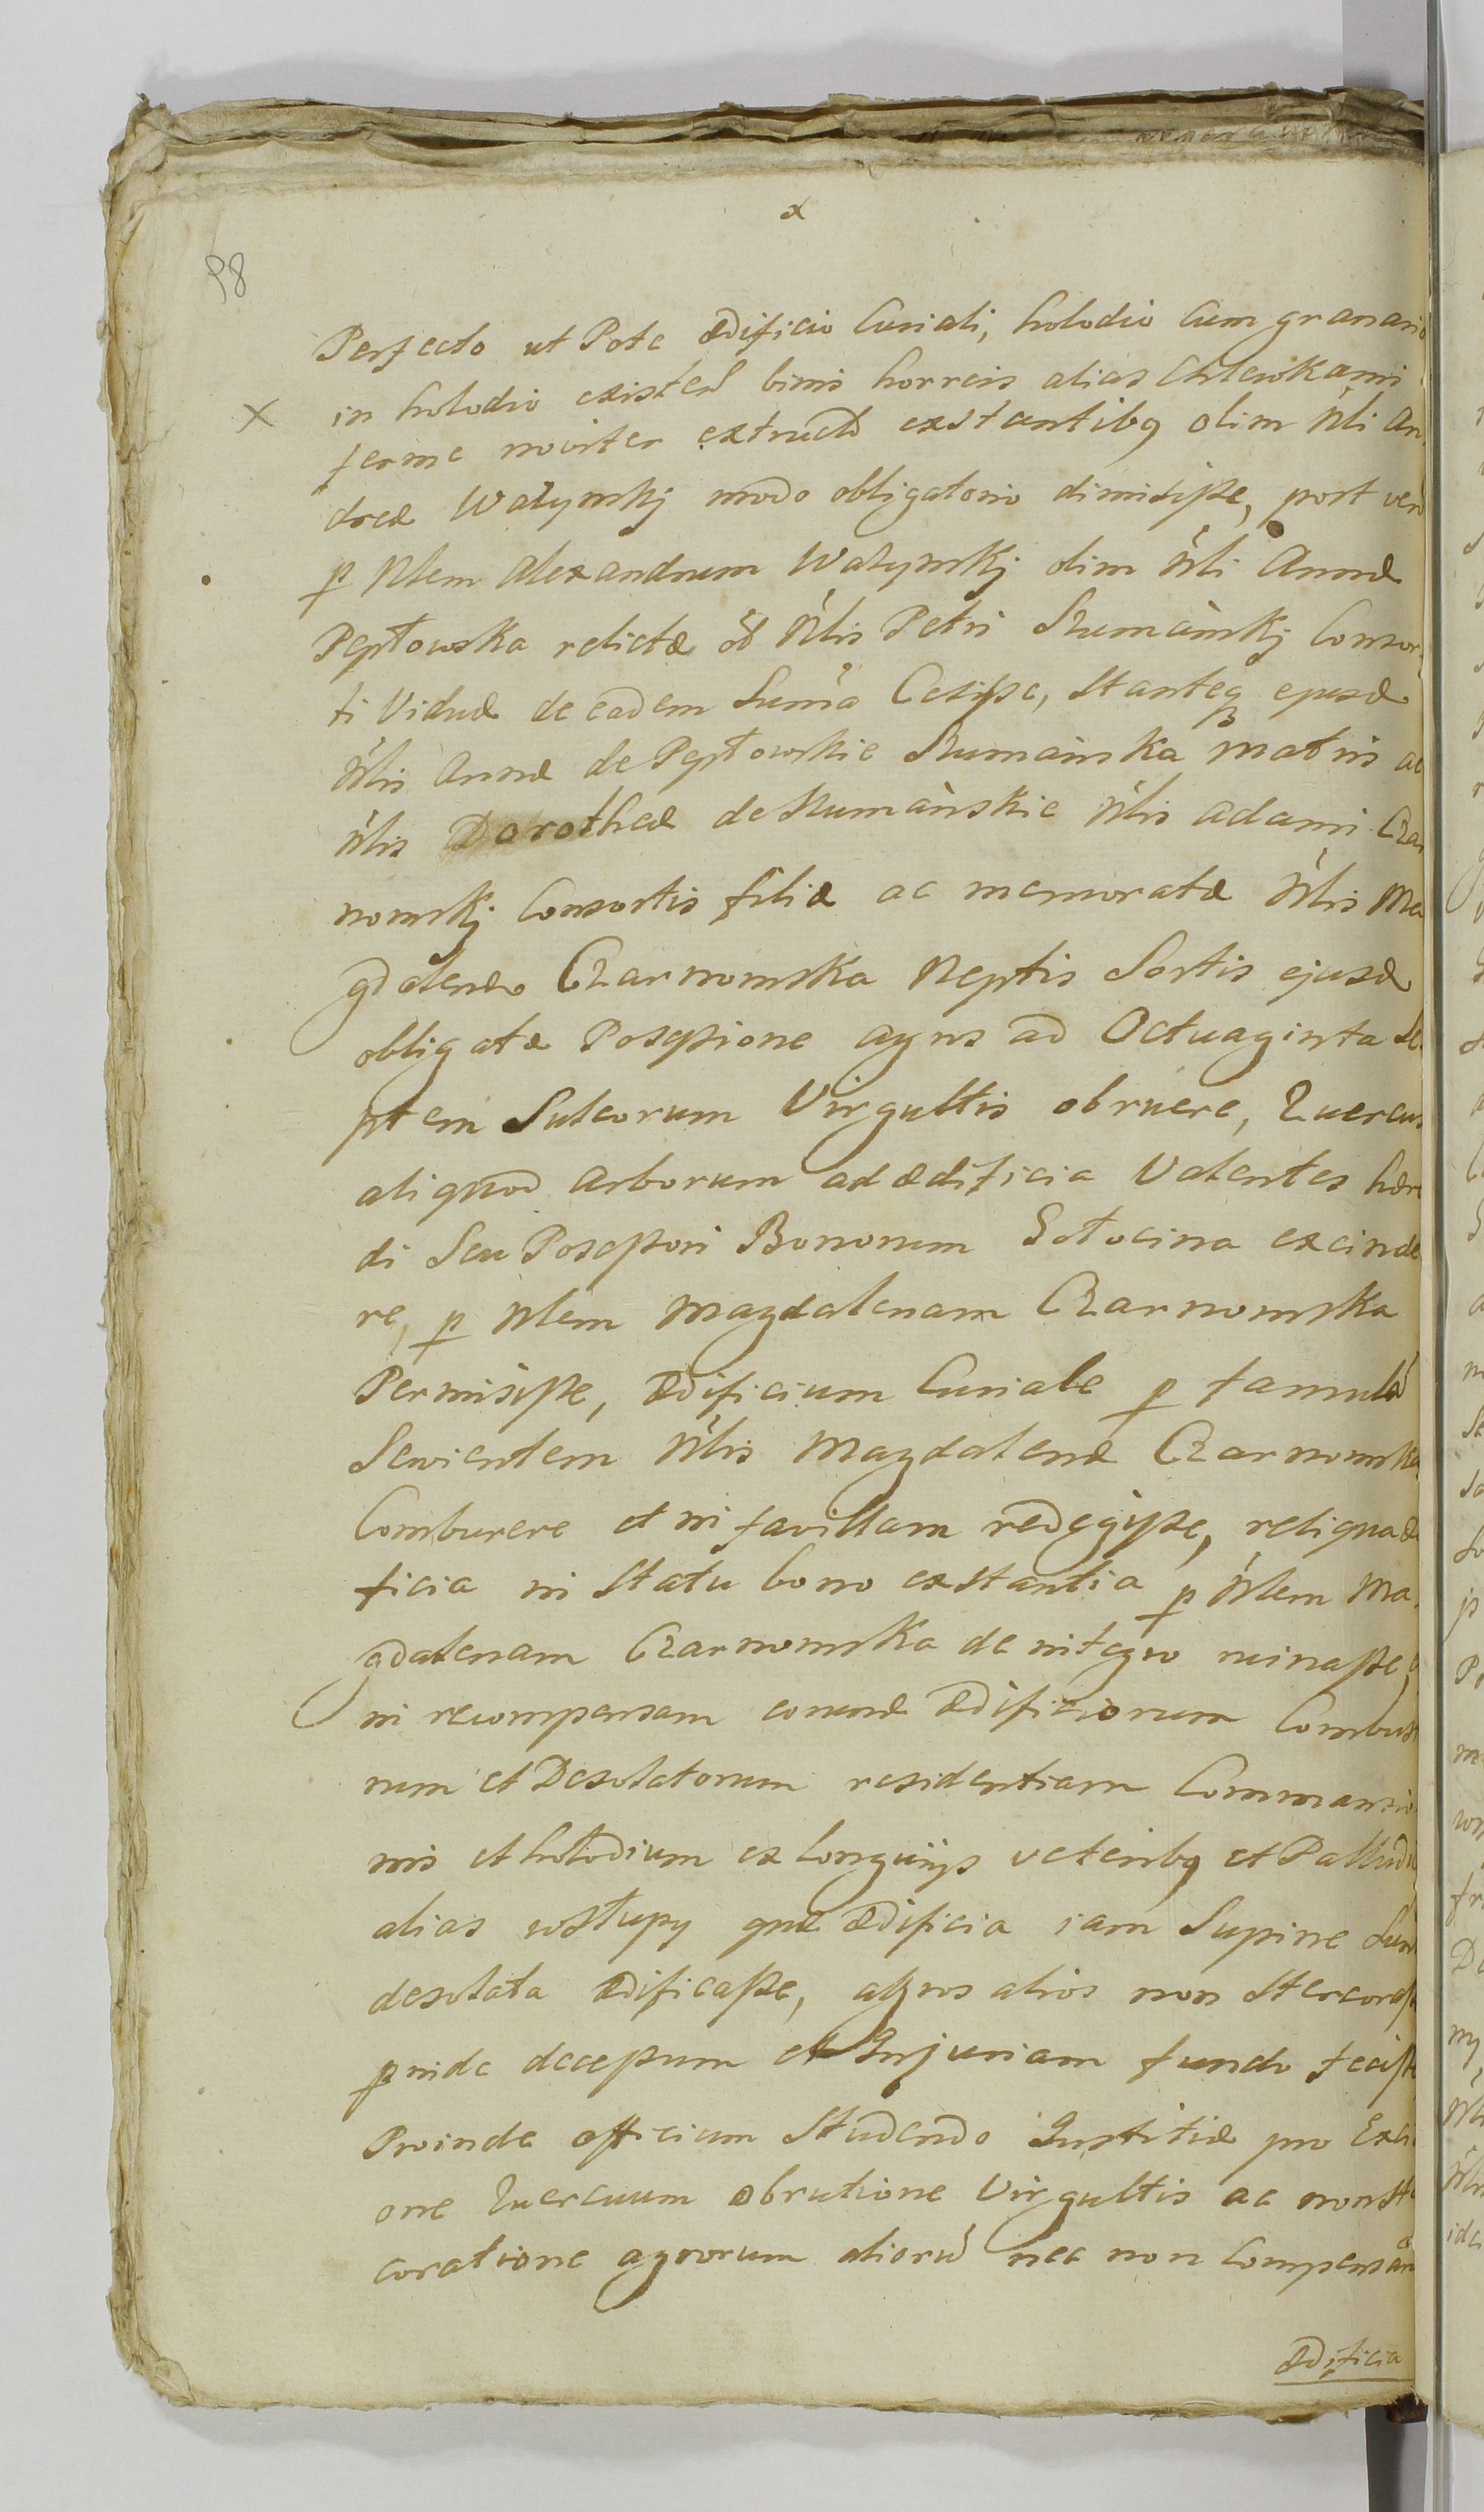 x
98
Perfecto ut Pote ædificio Curiali, holodio Cum granario
X in holodio existen binis horreis alias Chlewkami
ferme noviter extructo exstantibq olim Nli An
dreæ Watynskj modo obligatorio dimisiſse, post vero
p Nlem Alexandrum Watynskj olim Nli Annæ
Peptowska relictæ ol Nlis Petri Szumànskj Consor
ti Viduæ de eadem Suma Cesiſse, stanteq ejusd
Nlis Annæ de Peptowskie Szumànska Matris ac
Nlis Dorotheæ de Szumànskie Nlis Adami Czar
nomskj Consortis filiæ ac memoratæ Nlis Ma
gdalenæ Czarnomska Neptis Sortis ejusd
obligatæ Poseſsione agros ad Octuaginta Se
ptem Sulcorum Virgultis obruere, Quercus
aliquod arborum ad ædificia Valentes hære
di Seu Poseſsori Bonorum excinde
re, p Nlem Magdalenam Czarnomska
Permisiſse, ædificium Curiale p famulã
Servientem Nlis Magdalenæ Czarnomska
Comburere et in favillam redegiſse, reliqua æ
ficia in Statu bono exstantia p Nlem Ma
gdalenam Czarnomska de integro ruinaſse,
in recompensam eorund ædificiorum Combus
rum et Desolatorum residentiam Commansio
nis et holodium ex longuijs veteribq et Palludi
alias wstupy quæ ædificia iam Supine Sun
desolata ædificaſse, agros alios non Stercoraſse
pinde deceſsum et Injuriam fundo feciſse
Proinde officium Studendo Justitiæ pro Exci
one Quercuum obrutione Virgultis ac nonste
coratione agrorum aliorũ nec non Compensan
ædificia